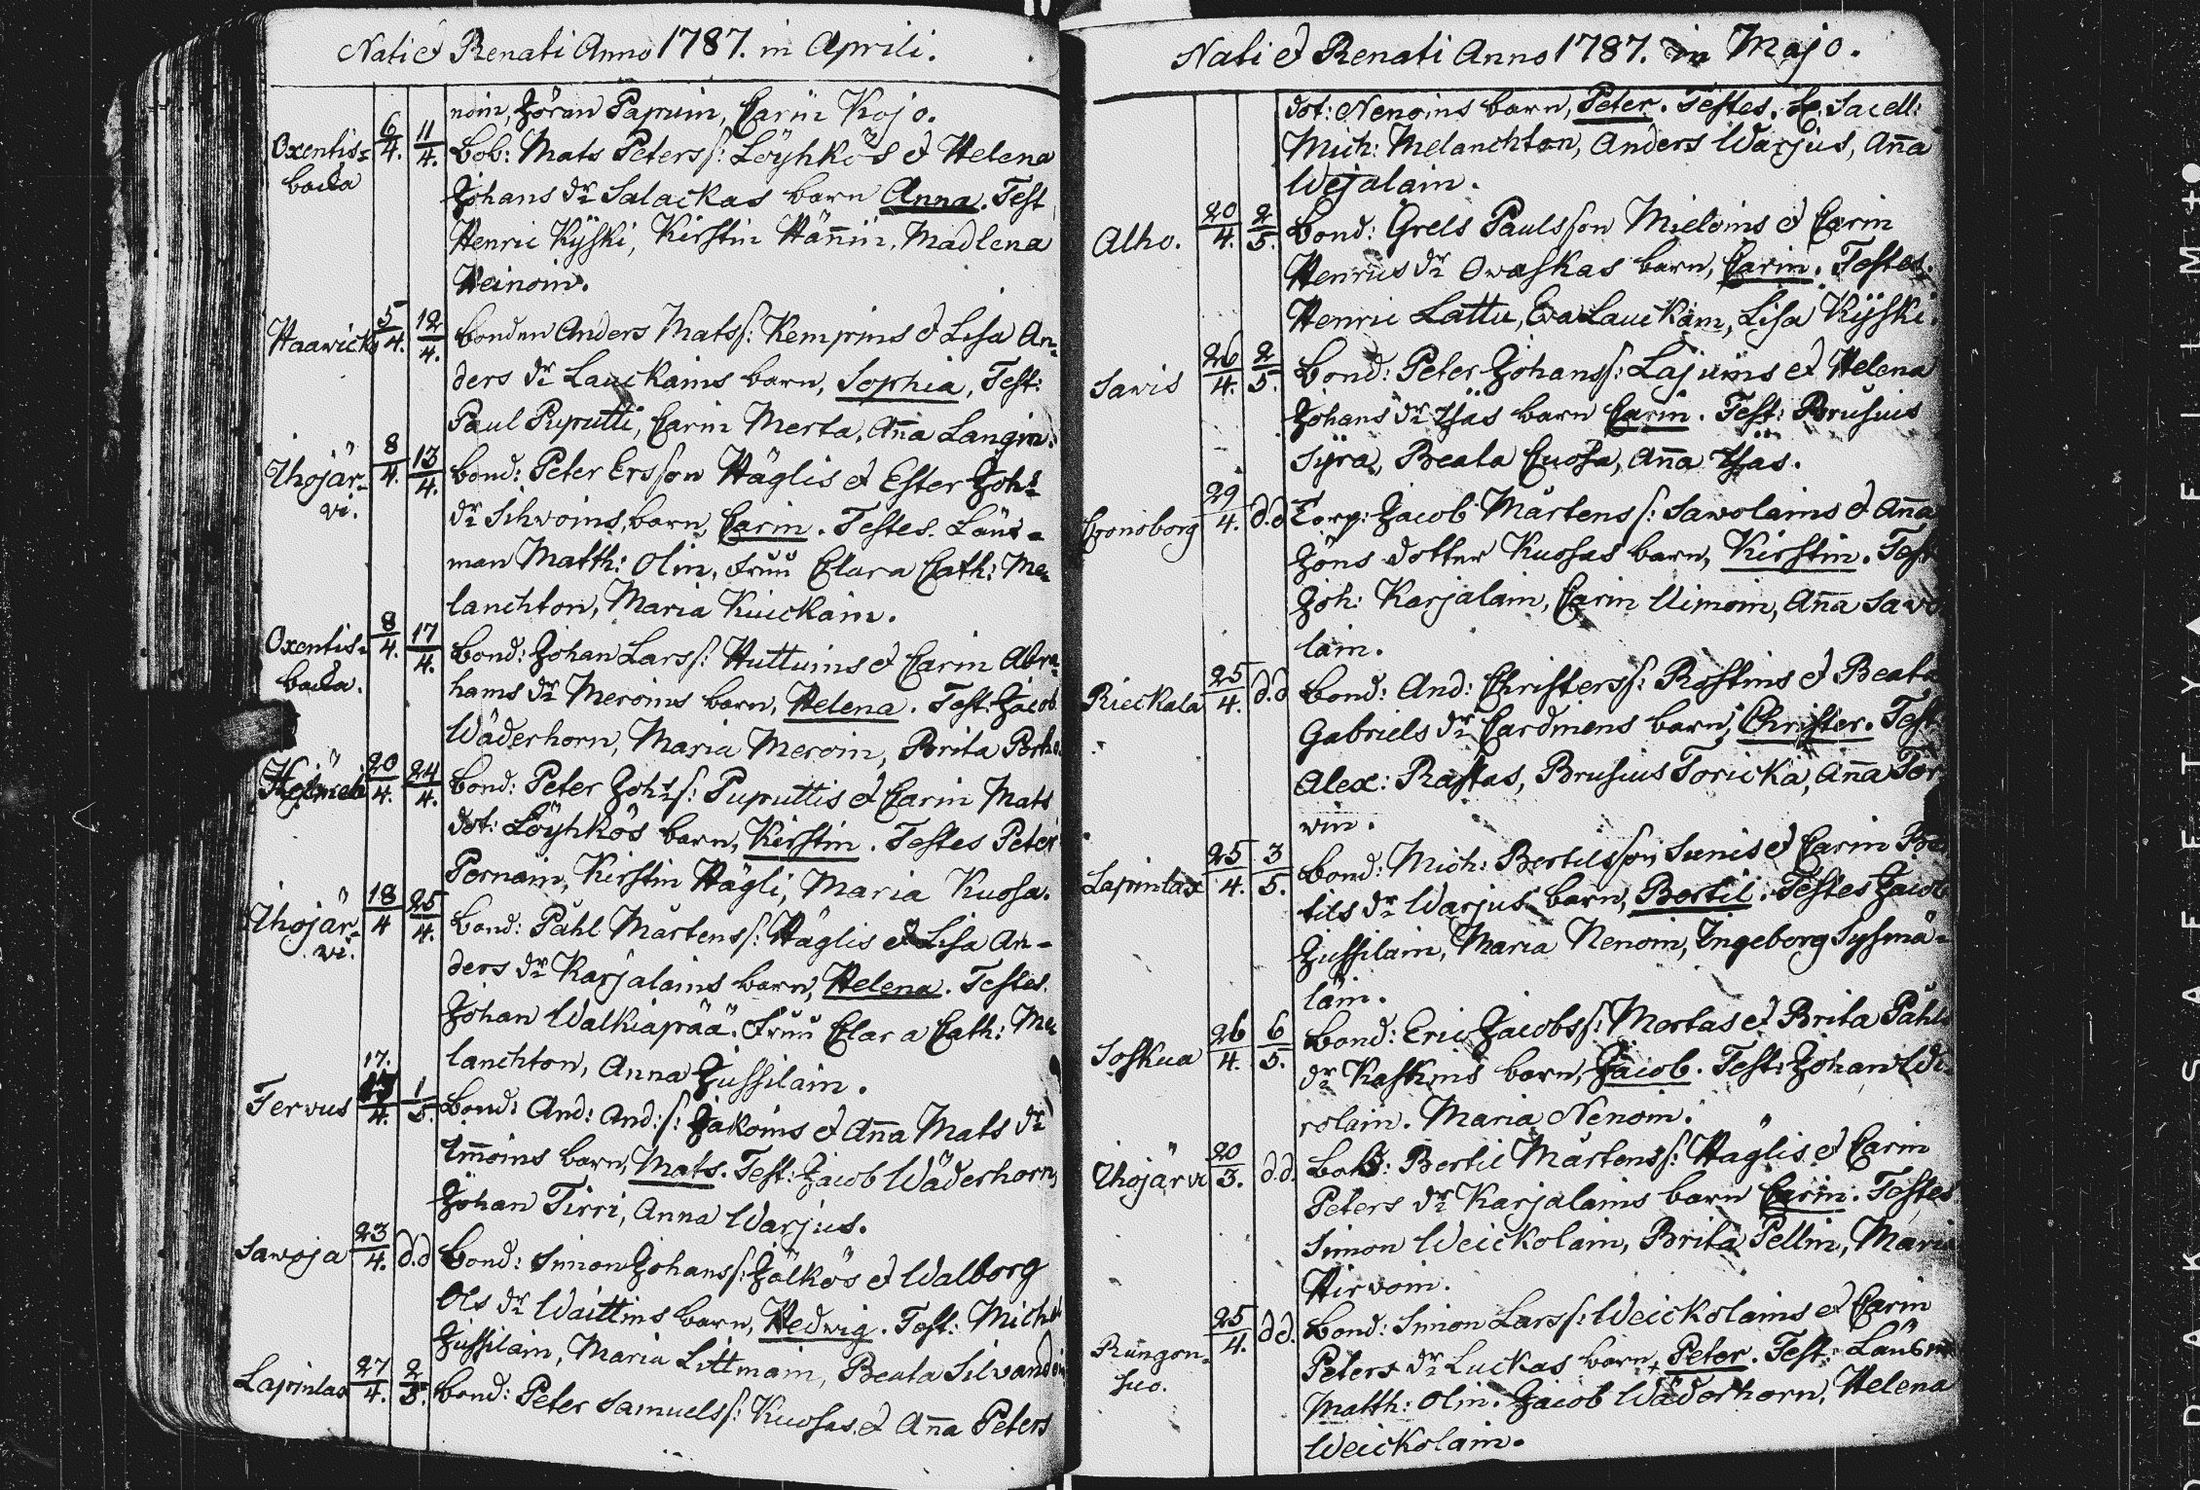 Nati & Renati Anno 1787. in Aprili.
noin, Jöran Papuin, Carin Kojo.
Oxentis= backa 6/4. 11/4. Bob: Mats Peters s: Löyhkös & Helena
Johans dr Salackas barn Anna. Test
Henric Kyski, Kirstin Hännin, Madlena
Heinoin.
Haawick 5/4. 12/4. bonden Anders Mats s: Kempins & Lisa An-
ders dr Lauckains barn, Sophia, Test:
Paul Puputti, Carin Merta, Aña Langin.
Ihojär- vi. 8/4. 13/4. bond: Peter Ersson Häglis & Ester Joh:
dr Sihvoins, barn, Carin. Testes. Läns-
man Matth: Olin, Fruu Clara Cath: Me-
lanchton, Maria Kuickain.
Oxentis= backa. 8/4. 17/4. bond: Johan Lars s: Huttuins & Carin Abra-
hams dr Meroins barn, Helena. Test: Jacob
Wäderhorn, Maria Meroin, Brita
20/4. 24/4. bond: Peter Joh: s: Puputtis & Carin Mats
dot: Löyhkös barn, Kirstin. Testes Peter
Pornain, Kirstin Hägli, Maria Kuosa.
Ihojär- vi. 18/4 25/4. bond: Påhl Mårtens s: Häglis & Lisa An-
ders dr Karjalains barn, Helena. Testes.
Johan Walkiapää. Fruu Clara Cath: Me-
lanchton, Anna Jussilain.
Tervus 17. 4. 1/5. bond: And: And: s: Jakoins & Aña Mats dr
Im̃oins barn, Mats. Test: Jacob Wäderhorn,
Johan Tirri, Anna Warjus.
Sawoja 23/4. d.d bond: Simon Johans s: Jälkös & Walborg
Ols dr Waittins barn, Hedwig. Test: Mich:
Jussilain, Maria Littmain, Beata
Lapinlax 27/4. 2/5. bond: Peter Samuels s: Kuosas & Aña Peters
Nati & Renati Anno 1787. in Majo.
dot: Nenoins barn, Peter. Testes. Sacell:
Mich: Melanchton, Anders Warjus, Aña
Wejalain.
Alho. 20/4. 2/5. bond: Grels Paulsson Mieloins & Carin
Henrics dr Owaskas barn, Carin. Testes.
Henric Lattu, Eva Lauckain, Lisa Kyski.
Sawis 26/4. 2/5. bond: Peter Johans s: Lajuins & Helena
Johans dr Ijäs barn Carin. Test: Brusius
Syrä, Beata Cuosa, Aña Ijäs.
Cronoborg 29/4. d.d Torp: Jacob Mårtens s: Sawolains & Aña
Jöns dotter Kuosas barn, Kirstin. Test
Joh: Karjalain, Carin Uimoin, Aña Sawo
lain.
Rieckala 25/4. d.d bond: And: Christers s: Rostins & Beata
Gabriels dr Cardinens barn, Christer. Test
Alex: Rastas, Brusius Toricka, Aña Tor
vin.
Lapinlax 25/4. 3/5. bond: Mich: Bertilsson Sunis & Carin Ber
tils dr Warjus barn, Bertil. Testes Jacob
Jussilain, Maria Nenoin, Ingeborg Sysmä-
läin.
Soskua 26/4. 6/5. bond: Eric Jacobs s: Mertas & Brita Påhls
dr Kaskins barn, Jacob. Test: Johan Wi-
rolain. Maria Nenoin.
Ihojärvi 20/3. d.d. Bob: Bertil Mårtens s: Häglis & Carin
Peters dr Karjalains barn Carin. Testes
Simon Weickolain, Brita Pellin, Maria
Hirvoin.
Rungon- suo. 25/4. d.d. bond: Simon Lars s: Weickolains & Carin
Peters dr Luckas barn, Peter. Test: Länsm
Matth: Olin. Jacob Wäderhorn, Helena
Weickolain.
SAFETY ▲ FILM